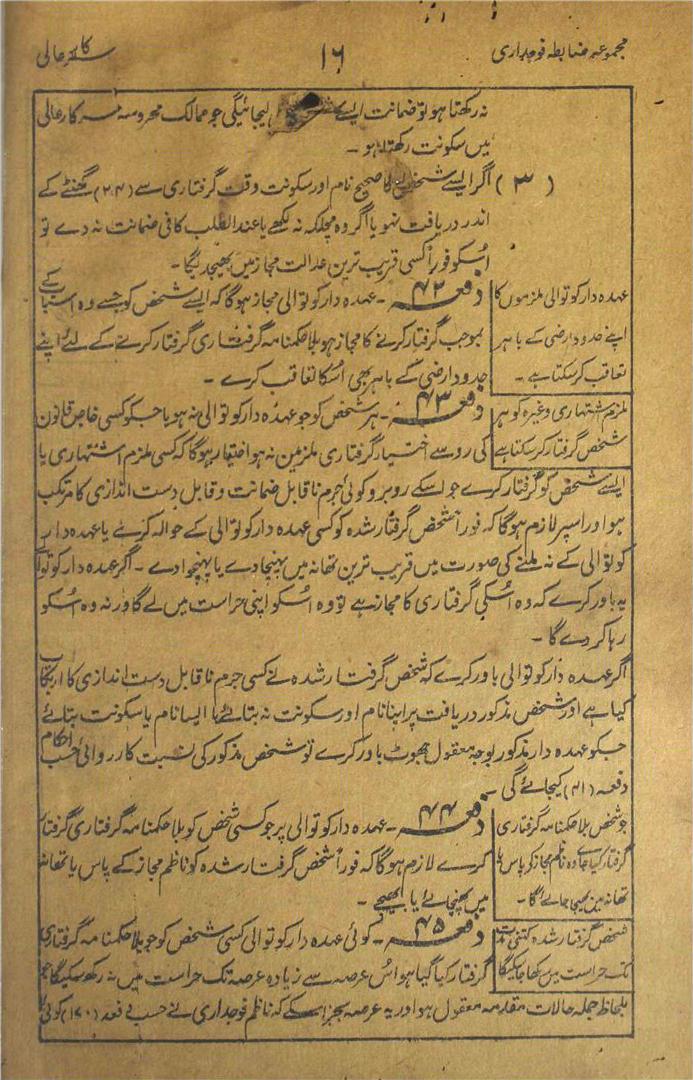 مجموعہ ضابطہ فوجداری
۱۶
سرکار عالی
نہ رکھتا ہو تو ضمانت ایسے لیجائیگی جو ممالک محروسہ سرکار عالی
میں سکونت رکھتا ہو ۔
(۳) اگر ایسے شخص کا صحیح نام اور سکونت وقت گرفتاری سے (۲۴) گھنٹے کے
اندر دریافت نہو یا اگر وہ مچلکہ نہ لکھے یا عند الطلب کافی ضمانت نہ دے تو
اُسکو فوراً کسی قریب ترین عدالت مجاز میں بھیجدیگا ۔
عہدہ دار کوتوالی ملزموں کا
اپنے حدود ارضی کے باہر
تعاقب کر سکتا ہے ۔
دفعہ ۴۲ ۔ عہدہ دار کوتوالی مجاز ہوگا کہ ایسے شخص کو جسے وہ اس باب کے
بموجب گرفتار کرنے کا مجاز ہو بلا حکمنامہ گرفتاری گرفتار کرنے کے لئے اپنے
حدود ارضی کے باہر بھی اُسکا تعاقب کرے ۔
ملزم اشتہاری وغیرہ کو ہر
شخص گرفتار کر سکتا ہے
دفعہ ۴۳ ۔ ہر شخص کو جو عہدہ دار کوتوالی نہ ہو یا جسکو کسی خاص قانون
کی رو سے اختیار گرفتاری ملزمین نہ ہو اختیار ہوگا کہ کسی ملزم اشتہاری یا
ایسے شخص کو گرفتار کرے جو اسکے روبرو کوئی جرم ناقابل ضمانت و قابل دست اندازی کا مرتکب
ہو اور اسپر لازم ہوگا کہ فوراً شخص گرفتار شدہ کو کسی عہدہ دار کوتوالی کے حوالہ کرے یا عہدہ دار
کوتوالی کے نہ ملنے کی صورت میں قریب ترین تھانہ میں پہنچا دے یا پہنچوا دے ۔ اگر عہدہ دار کوتوالی
یہ باور کرے کہ وہ اُسکی گرفتاری کا مجاز ہے تو وہ اُسکو اپنی حراست میں لے گا ورنہ وہ اسکو
رہا کر دے گا ۔
اگر عہدہ دار کوتوالی باور کرے کہ شخص گرفتار شدہ نے کسی جرم ناقابل دست اندازی کا ارتکاب
کیا ہے اور شخص مذکور دریافت پر اپنا نام اور سکونت نہ بتائے یا ایسا نام یا سکونت بتائے
جسکو عہدہ دار مذکور بوجہ معقول جھوٹ باور کرے تو شخص مذکور کی نسبت کارروائی حسب احکام
دفعہ (۴۱) کیجائے گی ۔
جو شخص بلا حکمنامہ گرفتاری
گرفتار کیا جائے وہ ناظم مجاز کے پاس یا
تھانہ میں بھیجا جائے گا ۔
دفعہ ۴۴ ۔ عہدہ دار کوتوالی پر جو کسی شخص کو بلا حکمنامہ گرفتاری گرفتار
کرے لازم ہوگا کہ فوراً شخص گرفتار شدہ کو ناظم مجاز کے پاس یا تھانہ
میں پہنچائے یا بھیجے ۔
شخص گرفتار شدہ کتنی مدت
تک حراست میں رکھا جائیگا
دفعہ ۴۵ ۔ کوئی عہدہ دار کوتوالی کسی شخص کو جو بلا حکمنامہ گرفتاری
گرفتار کیا گیا ہو اُس عرصہ سے زیادہ عرصہ تک حراست میں نہ رکھ سکیگا جو
بلحاظ جملہ حالات مقدمہ معقول ہو اور یہ عرصہ بجز اسکے کہ ناظم فوجداری نے حسب دفعہ (۱۷۰) کوئی